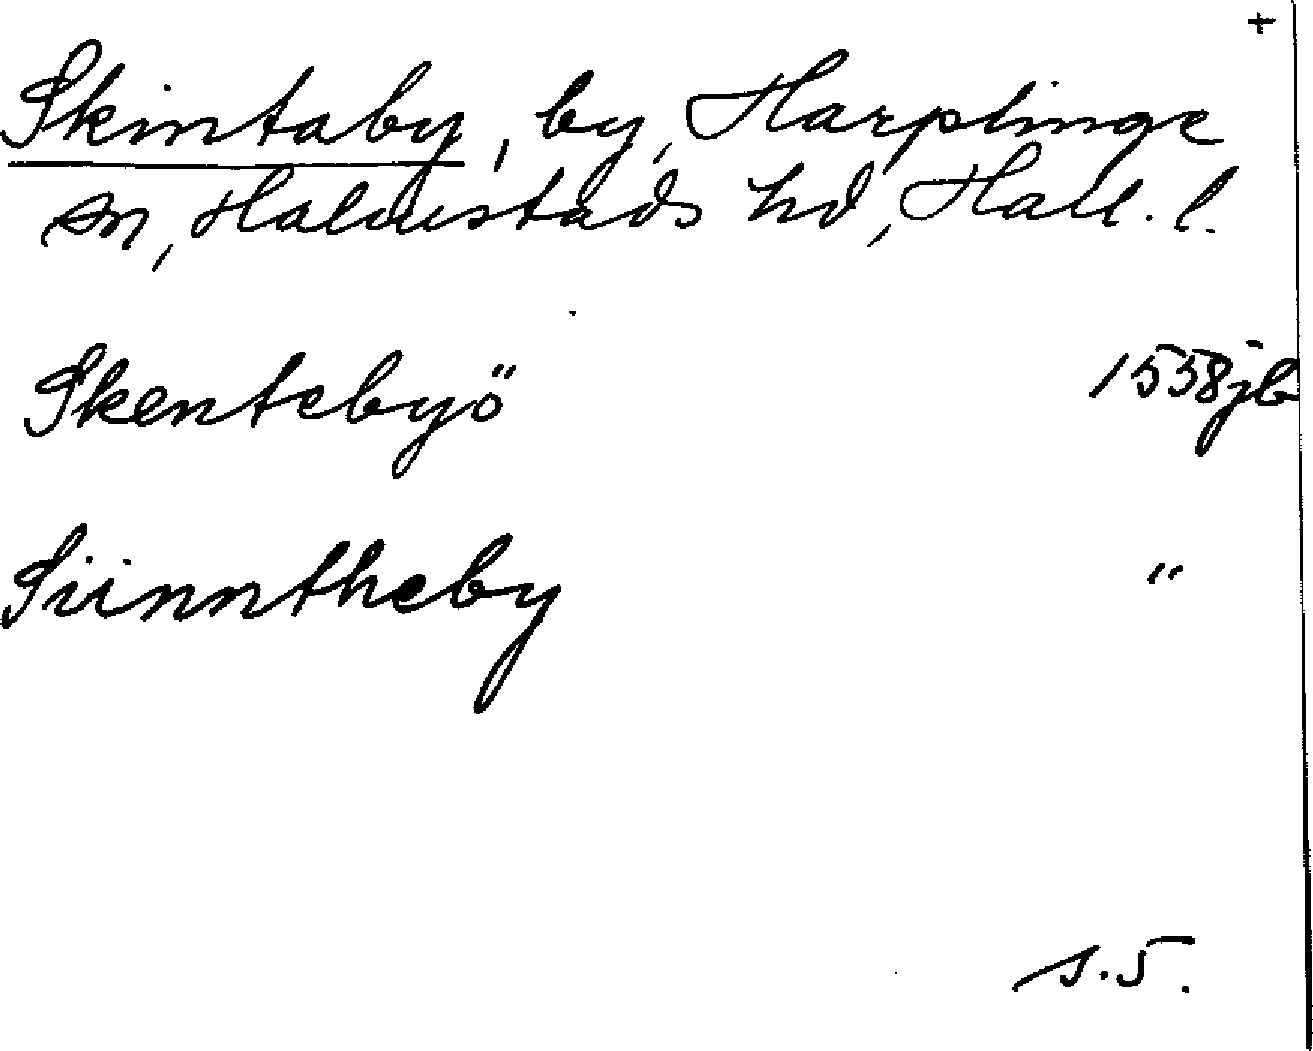 +
Skintaby, by, Harplinge
sn, Halmstads hd, Hall. l.
Skentebyö 1558 jb
Siinntheby "
s. 5.